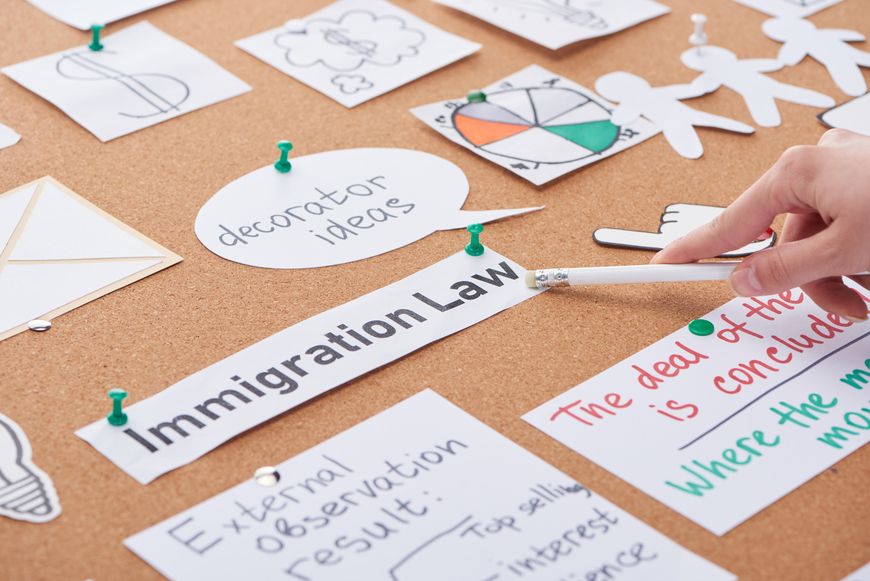 decorator
ideas
Immigration Law
The deal of the
is concluded
Where the
mo
External
observation
result:
Top selling
interest